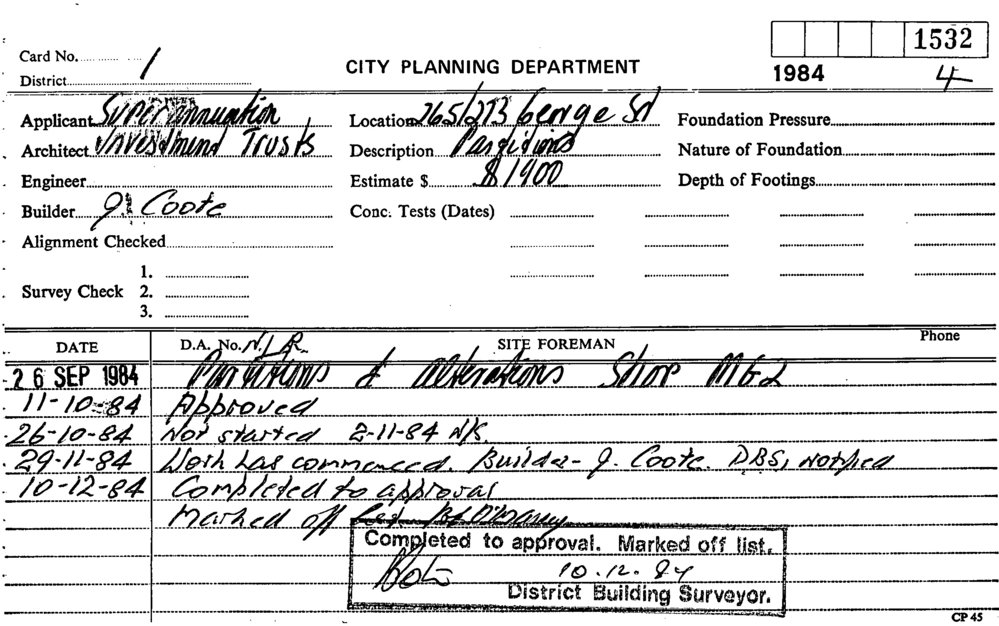 1532
Card No. 1
CITY PLANNING DEPARTMENT
1984 4
District
Applicant Superannuation Location 265/273 George St Foundation Pressure
Architect Investment Trusts Description Partitions Nature of Foundation
Engineer Estimate $ $1900 Depth of Footings
Builder J. Coote Conc. Tests (Dates)
Alignment Checked
1.
Survey Check 2.
3.
DATE D.A. No. N.L.R. SITE FOREMAN Phone
26 SEP 1984 Partitions & alterations Shop MG2
11-10-84 Approved
26-10-84 Not started 2-11-84 N/S
29-11-84 Work has commenced. Builder- J. Coote. DBS, notified
10-12-84 Completed to approval
Marked off
Completed to approval. Marked off list.
10.12.84
District Building Surveyor.
CP 45